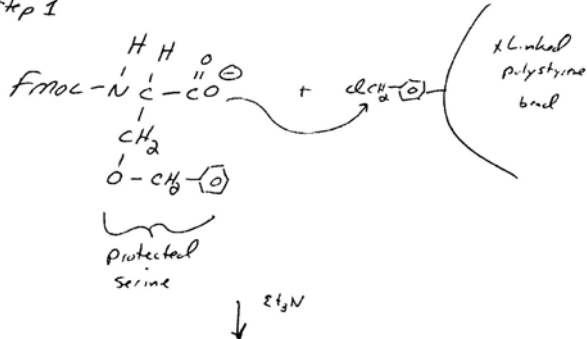 Step 1
H H O ⊖
Fmoc-N C-CO + ClCH2-
CH2
O-CH2-
xLinked
polystyrine
bead
protected
serine
Et3N